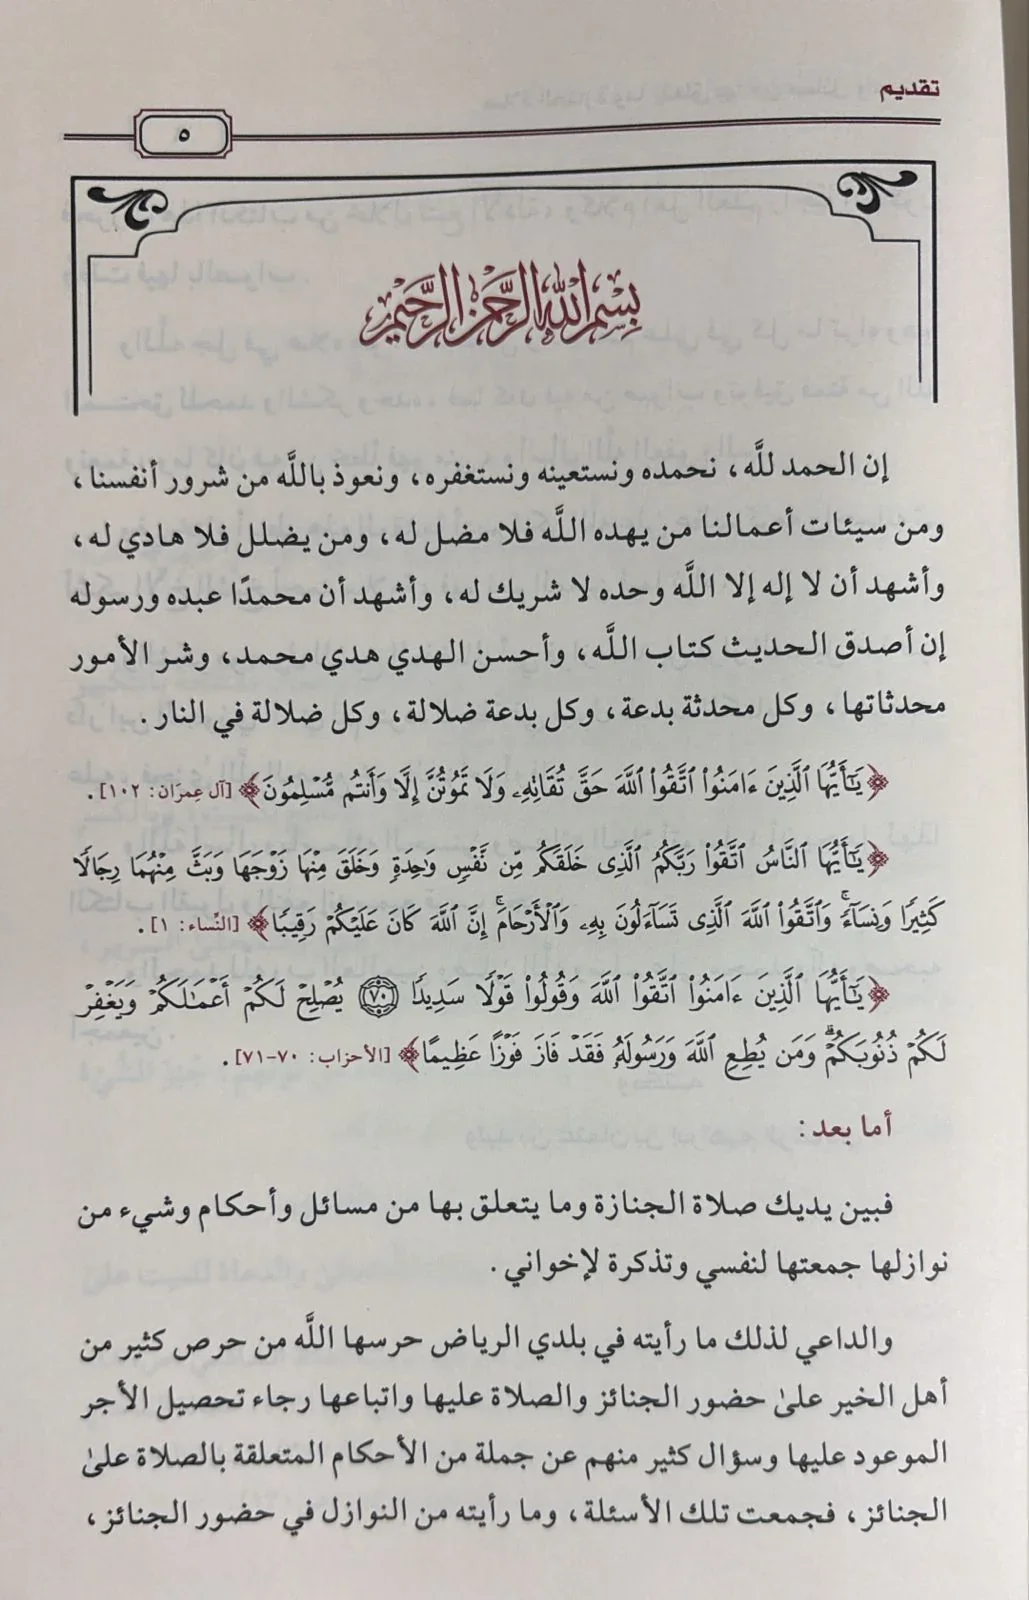 تقديم
٥
بسم الله الرحمن الرحيم
إن الحمد للَّه، نحمده ونستعينه ونستغفره، ونعوذ باللَّه من شرور أنفسنا،
ومن سيئات أعمالنا من يهده اللَّه فلا مضل له، ومن يضلل فلا هادي له،
وأشهد أن لا إله إلا اللَّه وحده لا شريك له، وأشهد أن محمدًا عبده ورسوله
إن أصدق الحديث كتاب اللَّه، وأحسن الهدي هدي محمد، وشر الأمور
محدثاتها، وكل محدثة بدعة، وكل بدعة ضلالة، وكل ضلالة في النار.
﴿يَٰٓأَيُّهَا ٱلَّذِينَ ءَامَنُوا۟ ٱتَّقُوا۟ ٱللَّهَ حَقَّ تُقَاتِهِۦ وَلَا تَمُوتُنَّ إِلَّا وَأَنتُم مُّسْلِمُونَ﴾ [آل عِمرَان: ١٠٢].
﴿يَٰٓأَيُّهَا ٱلنَّاسُ ٱتَّقُوا۟ رَبَّكُمُ ٱلَّذِى خَلَقَكُم مِّن نَّفْسٍ وَٰحِدَةٍ وَخَلَقَ مِنْهَا زَوْجَهَا وَبَثَّ مِنْهُمَا رِجَالًا
كَثِيرًا وَنِسَآءً ۚ وَٱتَّقُوا۟ ٱللَّهَ ٱلَّذِى تَسَآءَلُونَ بِهِۦ وَٱلْأَرْحَامَ ۚ إِنَّ ٱللَّهَ كَانَ عَلَيْكُمْ رَقِيبًا﴾ [النِّساء: ١].
﴿يَٰٓأَيُّهَا ٱلَّذِينَ ءَامَنُوا۟ ٱتَّقُوا۟ ٱللَّهَ وَقُولُوا۟ قَوْلًا سَدِيدًا ۝٧٠ يُصْلِحْ لَكُمْ أَعْمَٰلَكُمْ وَيَغْفِرْ
لَكُمْ ذُنُوبَكُمْ ۗ وَمَن يُطِعِ ٱللَّهَ وَرَسُولَهُۥ فَقَدْ فَازَ فَوْزًا عَظِيمًا﴾ [الأحزاب: ٧٠-٧١].
أما بعد:
فبين يديك صلاة الجنازة وما يتعلق بها من مسائل وأحكام وشيء من
نوازلها جمعتها لنفسي وتذكرة لإخواني.
والداعي لذلك ما رأيته في بلدي الرياض حرسها اللَّه من حرص كثير من
أهل الخير علىٰ حضور الجنائز والصلاة عليها واتباعها رجاء تحصيل الأجر
الموعود عليها وسؤال كثير منهم عن جملة من الأحكام المتعلقة بالصلاة علىٰ
الجنائز، فجمعت تلك الأسئلة، وما رأيته من النوازل في حضور الجنائز،